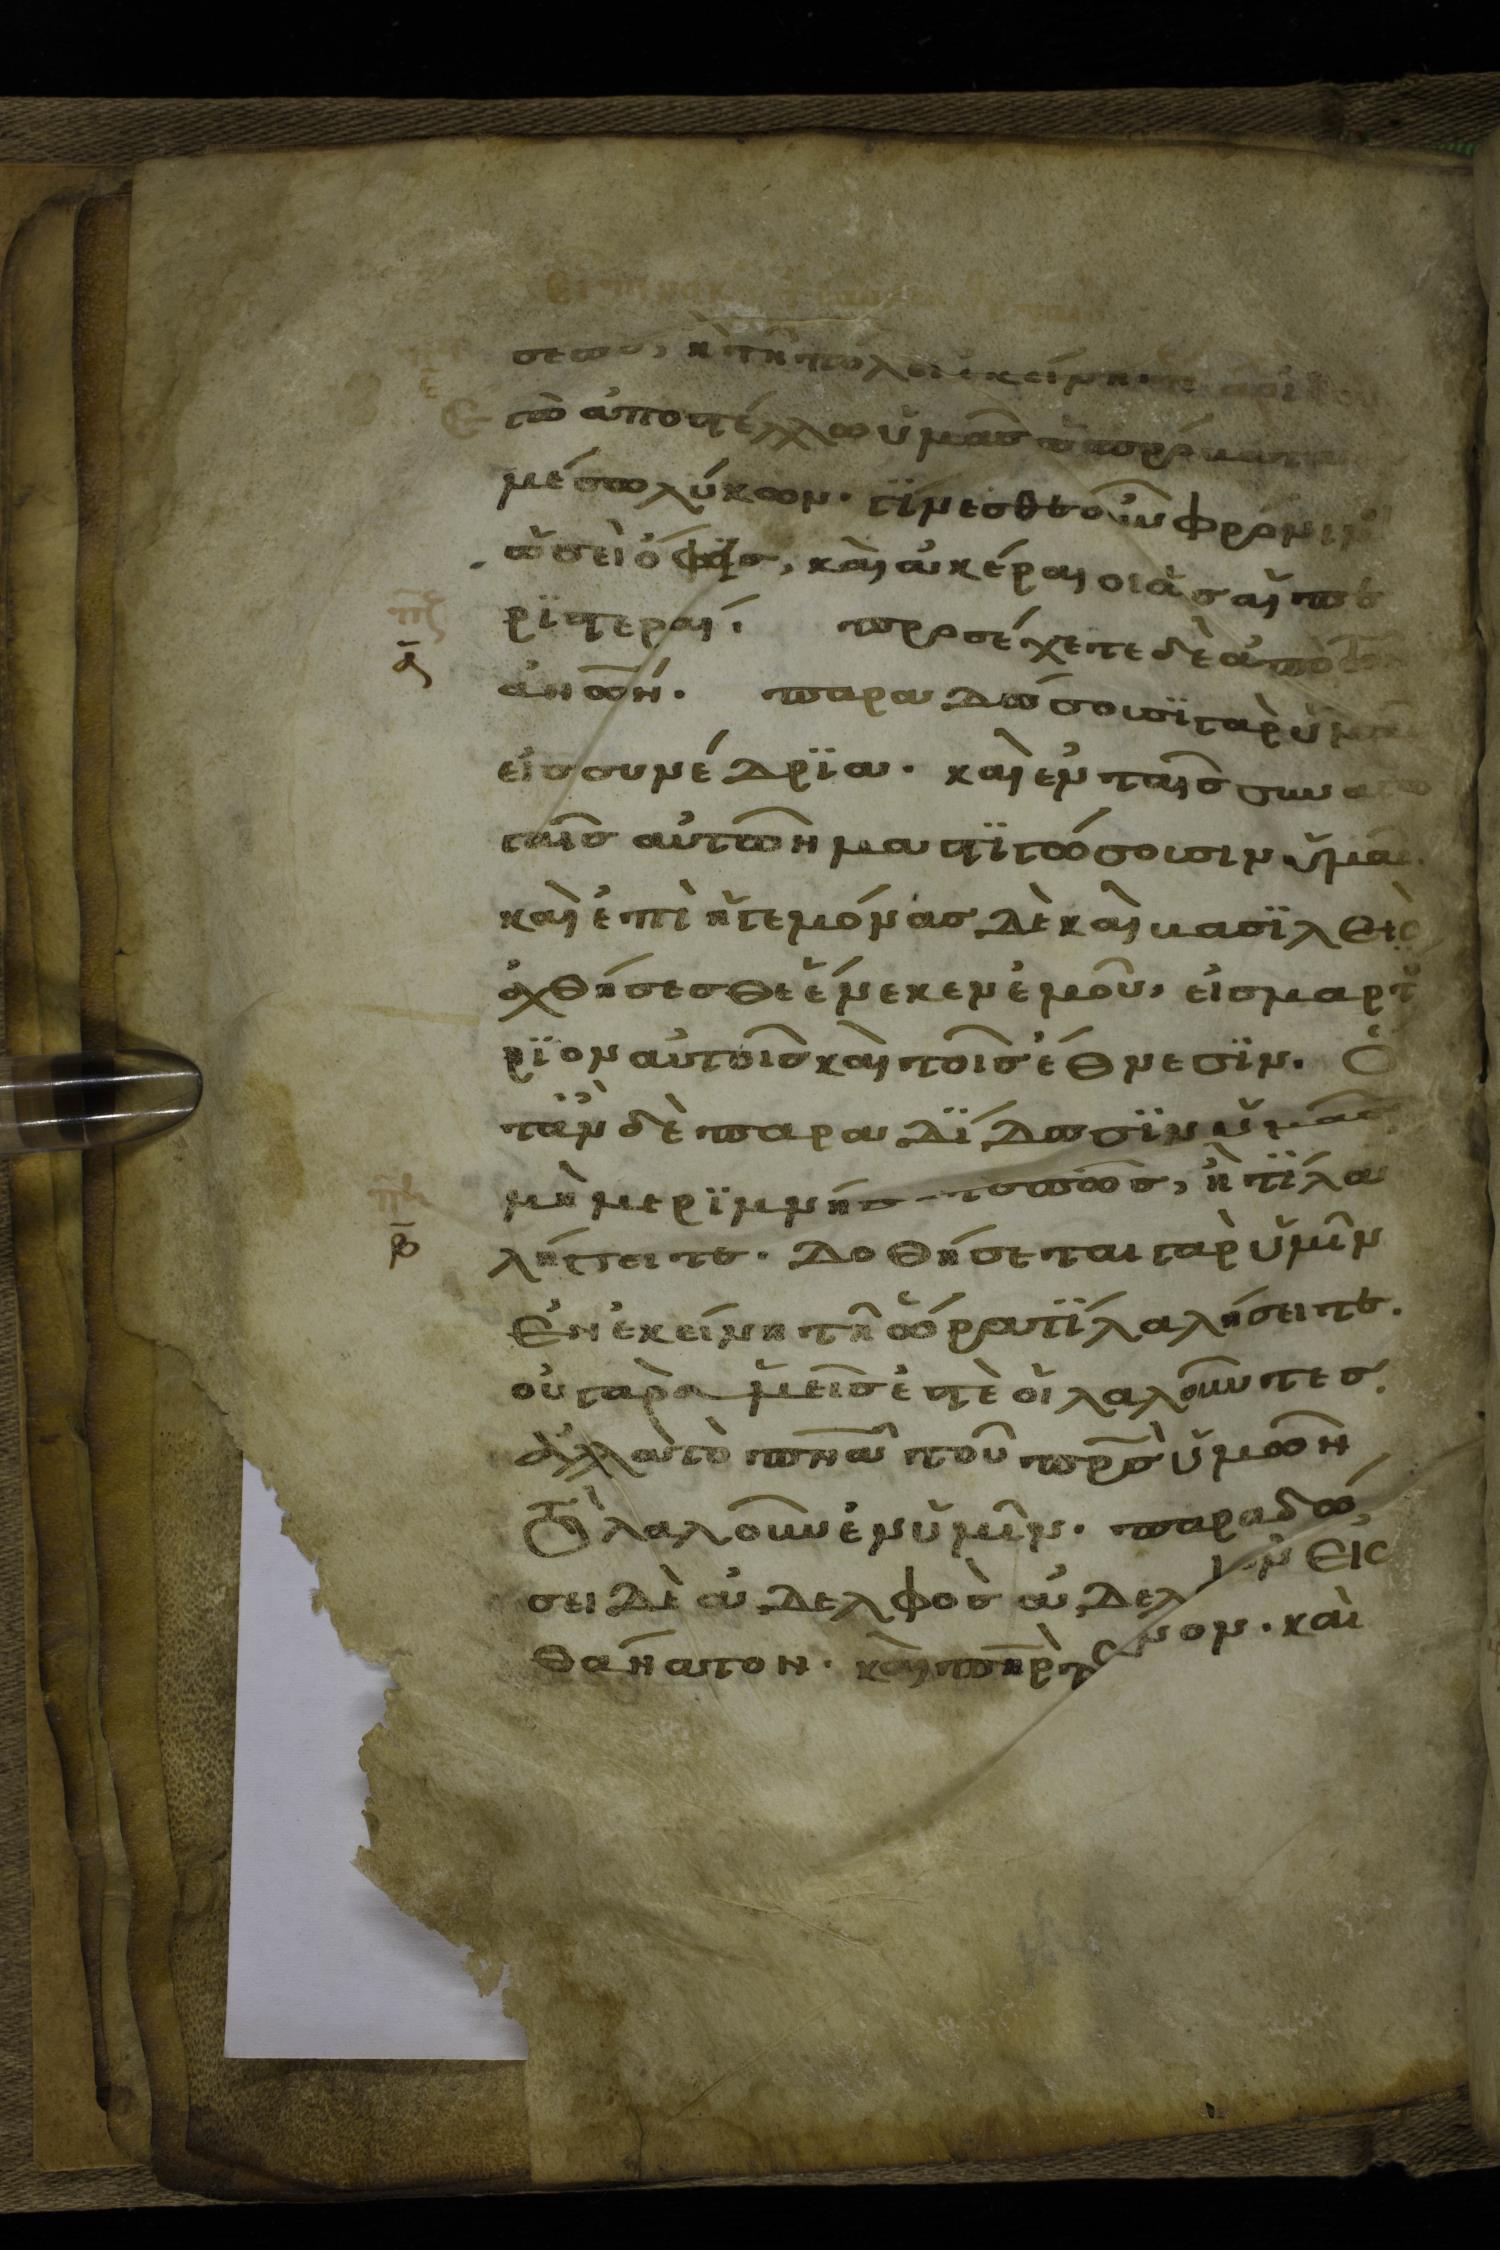 σεως, ἢ τῆ πόλει ἐκείνη. ἰδοὺ
ε
Ἐγὼ ἀποστέλλω ὑμᾶς ὡς πρόβατα
μέσω λύκων. γΐνεσθε οὖν φρόνιμοι
ὡσεὶ ὄφεις, καὶ ἀκέραιοι ὡσαὶ πε
πζ
α
ρϊστεραί. προσέχετε δὲ ἀπὸ τῶν
ἀνῶν. παραδώσουσϊ γὰρ ὑμᾶς
εἰς συνέδρϊα. καὶ ἐν ταῖς συναγω
γαῖς αὐτῶν μαστϊγώσουσιν ὑμᾶς.
καὶ ἐπὶ ἡγεμόνας δὲ καὶ βασϊλεῖς
ἀχθήσεσθε ἕνεκεν ἐμοῦ, εἰς μαρτυ
ρϊον αὐτοῖς καὶ τοῖς ἔθνεσϊν. Ὅ
τἂν δὲ παραδϊδωσϊν ὑμᾶς
πη
β
μὴ μερϊμνήσητε πῶς, ἢ τϊ λα
λήσειτε. δοθήσεται γὰρ ὑμῖν
Ἐν ἐκείνη τῆ ὥρα τϊ λαλήσειτε.
οὐ γὰρ ὑμεῖς ἐστὲ οἱ λαλοῦντες.
ἀλλὰ τὸ πνα τοῦ πρς ὑμῶν
Τὸ λαλοῦν ἐν ὑμῖν. παραδώ
σει δὲ ἀδελφὸς ἀδελφὸν εἰς
θάνατον. καὶ πηρ τέκνον. καὶ